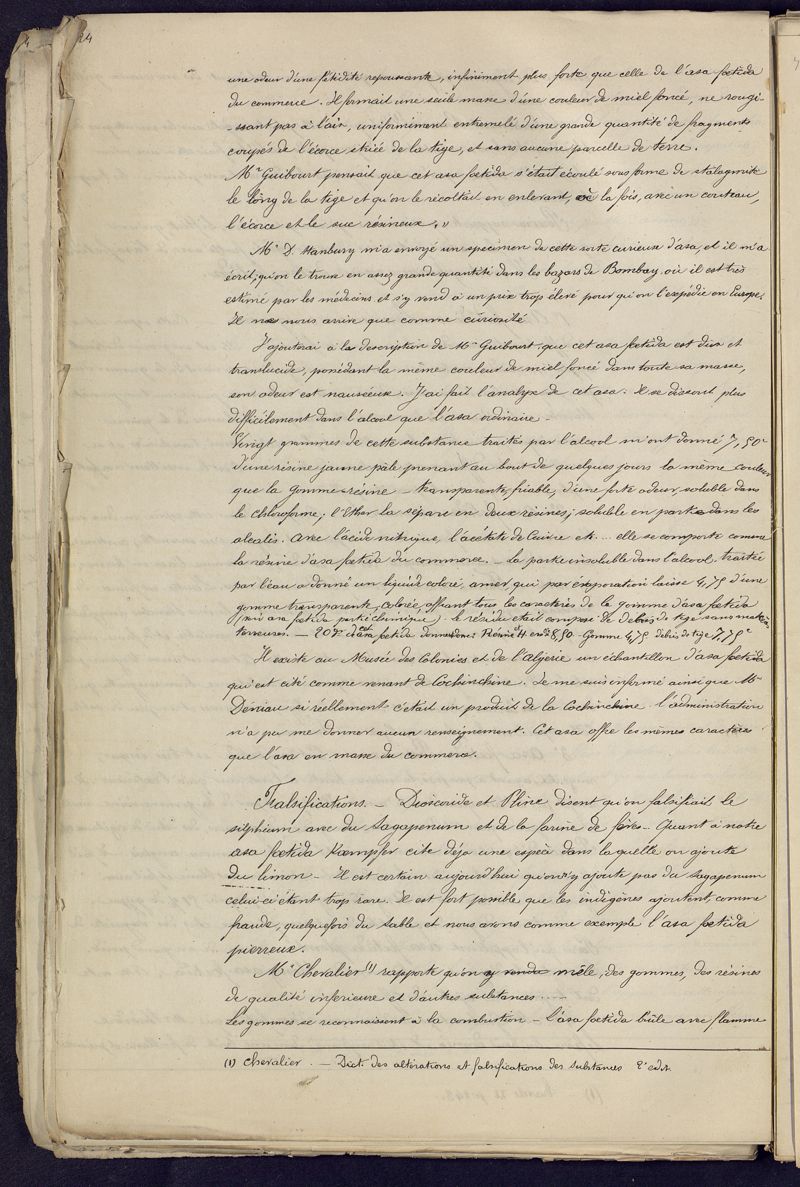 24
une odeur d'une fétidité repoussante, infiniment plus forte que celle de l'asa fœtida
du commerce. Il formait une seule masse d'une couleur de miel foncé, ne rougi-
-ssant pas à l'air, uniformément entremêlé d'une grande quantité de fragments
coupés de l'écorce striée de la tige, et sans aucune parcelle de terre.
Mr Guibourt pensait que cet asa fœtida s'était écoulé sous forme de stalagmite
le long de la tige et qu'on le récoltait en enlevant, à la fois, avec un couteau,
l'écorce et le suc résineux. "
Mr D. Hanbury m'a envoyé un specimen de cette sorte curieux d'asa, et il m'a
écrit, qu'on le trouve en assez grande quantité dans les bazars de Bombay où il est très
estimé par les médecins et s'y vend à un prix trop élevé pour qu'on l'expédie en Europe.
Il ne nous arrive que comme curiosité
J'ajouterai à la description de Mr Guibourt que cet asa fœtida est dur et
translucide, possédant la même couleur de miel foncé dans toute sa masse,
son odeur est nauséeux. J'ai fait l'analyse de cet asa. Il se dissout plus
difficilement dans l'alcool que l'asa ordinaire –
Vingt grammes de cette substance traités par l'alcool m'ont donné 7,50
d'une résine jaune pâle prenant au bout de quelques jours la même couleur
que la gomme-résine – transparente, friable, d'une forte odeur, soluble dans
le chloroforme; l'Ether la sépare en deux résines; soluble en partie dans les
alcalis. Avec l'acide nitrique, l'acétate de Cuivre etc... elle se comporte comme
la résine d'asa fœtida du commerce. – La partie insoluble dans l'alcool traitée
par l'eau a donné un liquide coloré, amer qui par évaporation laisse 4,75 d'une
gomme transparente, colorée, offrant tous les caractères de la gomme d'asa fœtida
(voir asa fœtida partie chimique) – le résidu était composé de débris de tige sans matières
terreuses. – 20gr d'cet asa fœtida donne donc Résine et 8,50 – Gomme 4,75 débris de tige 7,75
Il existe au Musée des Colonies et de l'Algerie un échantillon d'asa fœtida
qui est cité comme venant de Cochinchine. Je me suis informé ainsi que Mr
Deniau si réellement c'était un produit de la Cochinchine l'administration
n'a pu me donner aucun renseignement. Cet asa offre les mêmes caractères
que l'asa en masse du commerce.
Falsifications. – Dioscoride et Pline disent qu'on falsifiait le
silphium avec du Sagapenum et de la farine de fèves – Quant à notre
asa fœtida Kæmpfer cite déja une espèce dans laquelle on ajoute
du limon – Il est certain aujourd'hui qu'on n'y ajoute pas du Sagapenum
celui-ci étant trop rare. Il est fort possible que les indigènes ajoutent, comme
fraude, quelquefois du sable et nous avons comme exemple l'asa fœtida
pierreux.
Mr Chevalier (1) rapporte qu'on y mêle, des gommes, des résines
de qualité inférieure et d'autres substances. ...
Les gommes se reconnaissent à la combustion – L'asa fœtida brûle avec flamme
(1) Chevalier. – Dict. des altérations et falsifications des substances 2e edit.